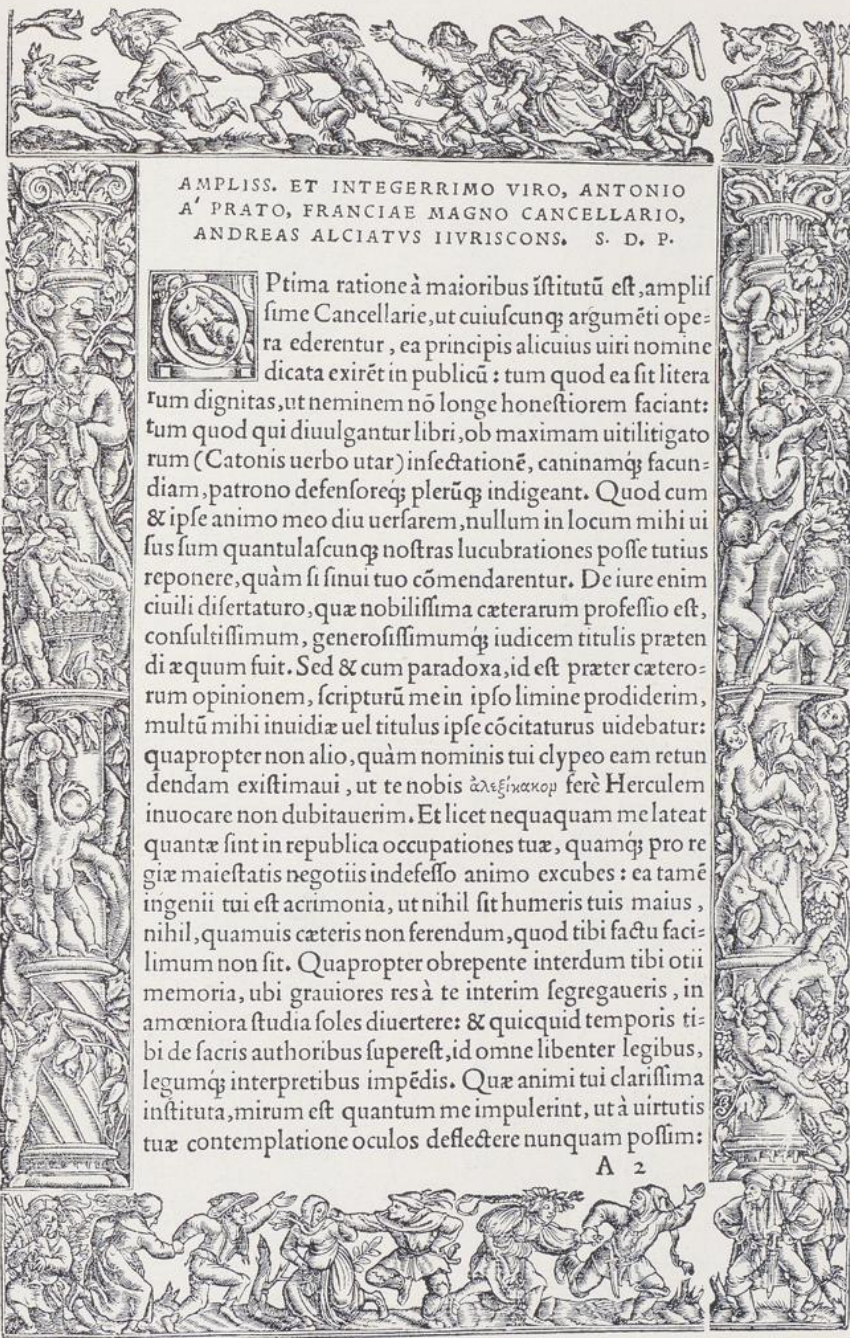 AMPLISS. ET INTEGERRIMO VIRO, ANTONIO
A' PRATO, FRANCIAE MAGNO CANCELLARIO,
ANDREAS ALCIATVS IIVRISCONS. S. D. P.
OPtima ratione à maioribus ĩſtitutũ eſt, ampliſ
ſime Cancellarie, ut cuiuſcunqꝫ argumẽti ope=
ra ederentur, ea principis alicuius uiri nomine
dicata exirẽt in publicũ: tum quod ea ſit litera
rum dignitas, ut neminem nõ longe honeſtiorem faciant:
tum quod qui diuulgantur libri, ob maximam uitilitigato
rum (Catonis uerbo utar) inſectationẽ, caninamqꝫ́ facun=
diam, patrono defenſoreqꝫ́ plerũqꝫ indigeant. Quod cum
& ipſe animo meo diu uerſarem, nullum in locum mihi ui
ſus ſum quantulaſcunqꝫ noſtras lucubrationes poſſe tutius
reponere, quàm ſi ſinui tuo cõmendarentur. De iure enim
ciuili diſertaturo, quæ nobiliſſima cæterarum profeſſio eſt,
conſultiſſimum, generoſiſſimumqꝫ́ iudicem titulis præten
di æquum fuit. Sed & cum paradoxa, id eſt præter cætero=
rum opinionem, ſcripturũ me in ipſo limine prodiderim,
multũ mihi inuidiæ uel titulus ipſe cõcitaturus uidebatur:
quapropter non alio, quàm nominis tui clypeo eam retun
dendam exiſtimaui, ut te nobis ἀλεξίκακον ferè Herculem
inuocare non dubitauerim. Et licet nequaquam me lateat
quantæ ſint in republica occupationes tuæ, quamqꝫ́ pro re
giæ maieſtatis negotiis indefeſſo animo excubes: ea tamẽ
ingenii tui eſt acrimonia, ut nihil ſit humeris tuis maius,
nihil, quamuis cæteris non ferendum, quod tibi factu faci=
limum non ſit. Quapropter obrepente interdum tibi otii
memoria, ubi grauiores res à te interim ſegregaueris, in
amœniora ſtudia ſoles diuertere: & quicquid temporis ti=
bi de ſacris authoribus ſupereſt, id omne libenter legibus,
legumqꝫ́ interpretibus impẽdis. Quæ animi tui clariſſima
inſtituta, mirum eſt quantum me impulerint, ut à uirtutis
tuæ contemplatione oculos deflectere nunquam poſſim:
A 2